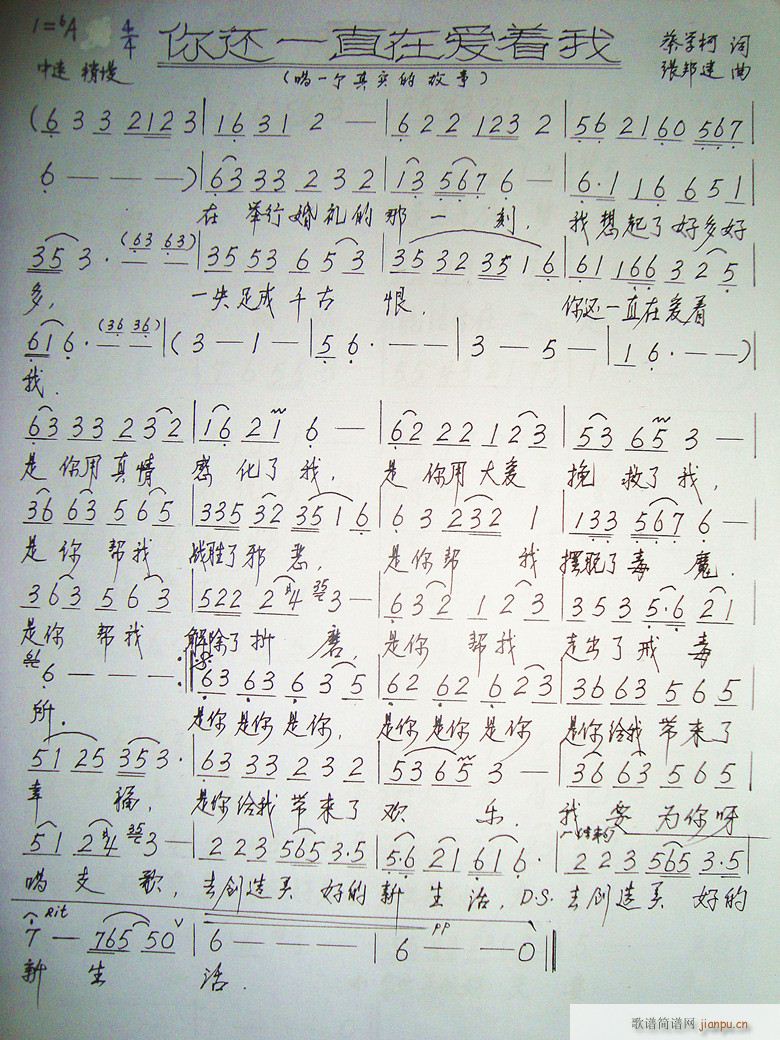 1=♭A 4/4 你还一直在爱着我 蔡学柯 词
中速 稍慢 (唱一个真实的故事) 张邦建 曲
(6 3 3 2123 | 16 31 2 — | 622 123 2 | 56 2160 567 |
6 — — — ) | 63 33 232 | 13 567 6 — | 6·1 16 651 |
在 举行婚礼的那一刻, 我想起了好多好
353·(63 63) | 35 53 653 | 3532 3516 | 61 166 325 |
多, 一失足成千古恨, 你还一直在爱着
616·(36 36) | (3 — 1 — | 56· — — | 3 — 5 — | 16· — —)
我.
63 33 232 | 16 21 6 — | 62 22 123 | 53 65 3 — |
是你用真情感化了我, 是你用大爱挽救了我,
36 63 565 | 335 32 3516 | 63 232 1 | 133 567 6 — |
是你帮我战胜了邪恶, 是你帮我摆脱了毒魔.
363 563 | 522 2 4 3 — | 632 123 | 353 5·6 21 |
是你帮我解除了折磨, 是你帮我走出了戒毒
6 — — — :| 63 63 635 | 62 62 623 | 3663 565 |
所. 是你是你是你, 是你是你是你 是你给我带来了
51 25 353· | 63 33 232 | 5365 3 — | 36 63 565 |
幸福, 是你给我带来了欢乐. 我要为你呀
51 2 4 3 — | 223 565 3·5 | 5·6 21 616· | 223 565 3·5 |
唱支歌, 去创造美好的新生活, D.S. 去创造美好的
Rit pp
7 — 765 50 | 6 — — — | 6 — — 0 ||
新生活.
歌谱简谱网 jianpu.cn